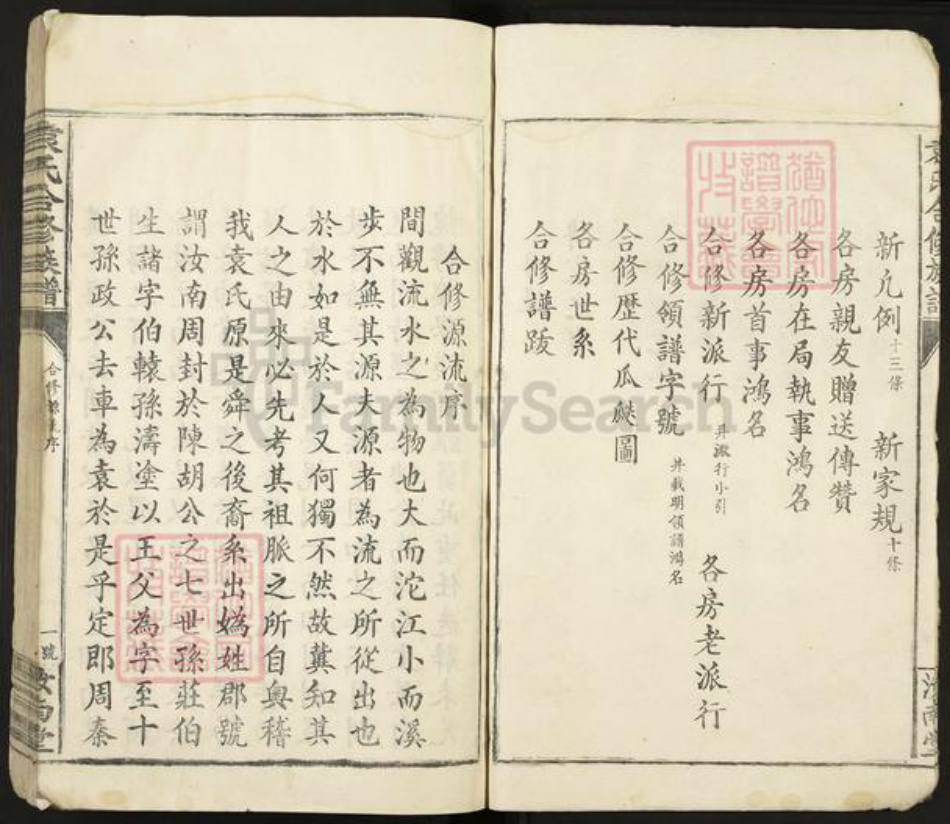 新凡例十三條 新家規十條
各房親友贈送傳贊
各房在局執事鴻名
各房首事鴻名
合修新派行 并派行小引 各房老派行
合修領譜字號 并載明領譜鴻名
合修歷代瓜瓞圖
各房世系
合修譜跋
合修源流序
間觀流水之為物也大而沱江小而溪
步不無其源夫源者為流之所從出也
於水如是於人又何獨不然故冀知其
人之由來必先考其祖脈之所自奥稽
我袁氏原是舜之後裔系出媯姓郡號
謂汝南周封於陳胡公之七世孫莊伯
生諸字伯轅孫濤塗以王父為字至十
世孫政公去車為袁於是乎定郎周秦
袁氏合修族譜
合修源流序
一號
汝南堂
FamilySearch